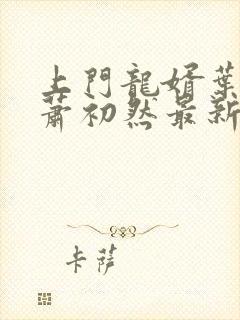 上門龍婿葉
蕭初然最新
卡薩